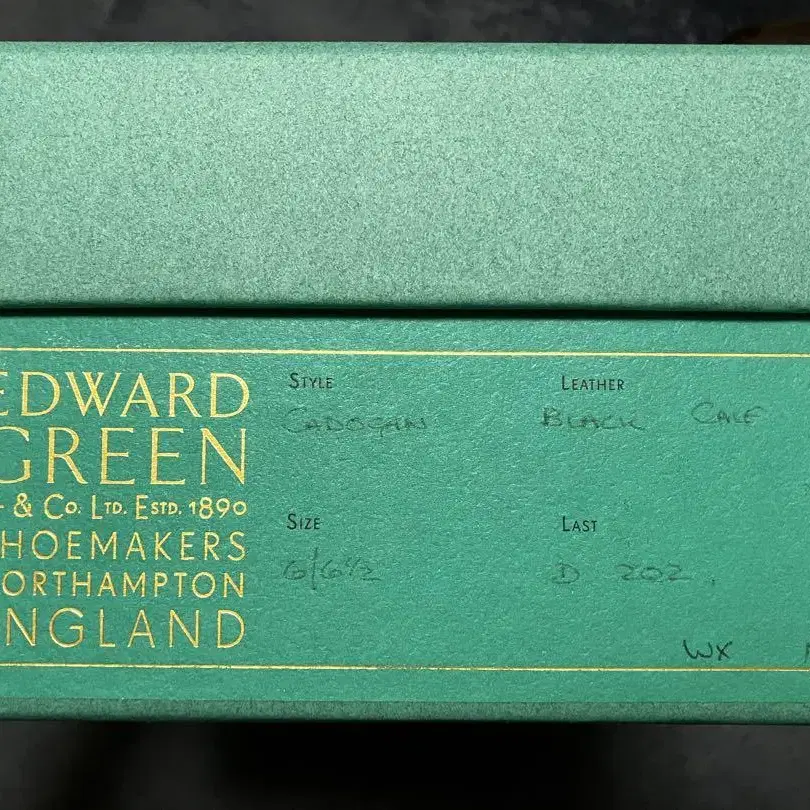 EDWARD
GREEN
& Co. Ltd. Estd. 1890
HOEMAKERS
ORTHAMPTON
NGLAND
STYLE
CADOGAN
LEATHER
BLACK CALF
SIZE
6/6½
LAST
D 202.
WX